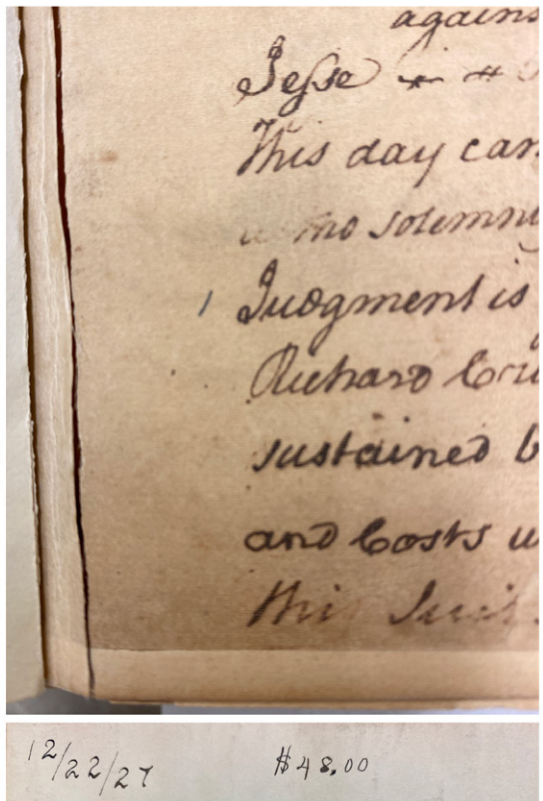 against
Jesse
This day cam
mo solemn
Judgment is
Richard Cru
sustained b
and Costs w
this Suit
12/22/27 $48.00